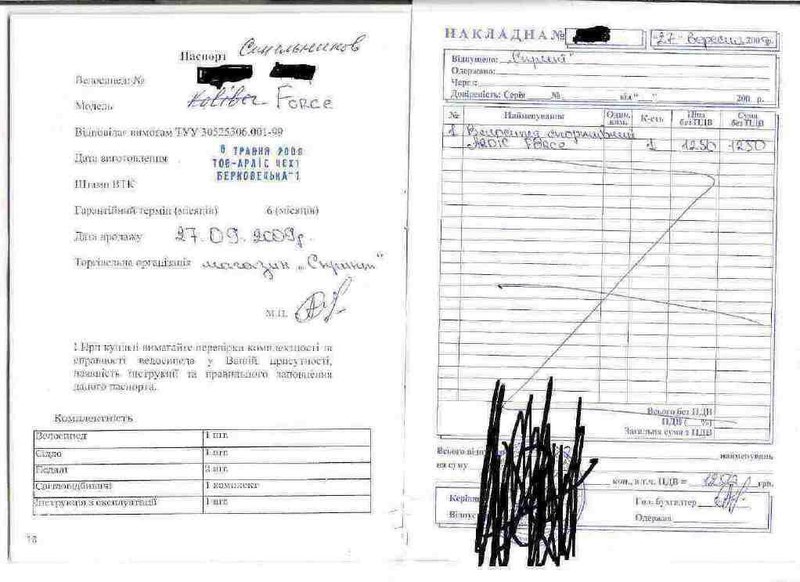 Паспорт Синельников
Велосипед №
Модель Koliber Force
Відповідає вимогам ТУУ 30525306.001-99
Дата виготовлення 6 ТРАВНЯ 2008
ТОВ-АРДІС ЧЕХ1
БЕРКОВЕЦЬКА-1
Штамп ВТК
Гарантійний термін (місяців) 6 (місяців)
Дата продажу 27.09.2009р.
Торгівельна організація магазин „Спринт"
М.П.
! При купівлі вимагайте перевірки комплектності та
справності велосипеда у Вашій присутності,
наявність інструкції та правильного заповнення
даного паспорта.
Комплектність
Велосипед 1 шт.
Сідло 1 шт.
Педалі 2 шт.
Світловідбивачі 1 комплект
Інструкція з експлуатації 1 шт.
18
НАКЛАДНА № "27" вересня 2009р.
Відпущено: „Спринт"
Одержано:
Через:
Довіреність: Серія № від " " 200 р.
№ Найменування Один. вим. К-сть Ціна без ПДВ Сума без ПДВ
1 Велосипед спортивний
ARDIS Force 1 1250 1250
Всього без ПДВ
ПДВ ( %)
Загальна сума з ПДВ
Всього найменувань
на суму
коп., в т.ч. ПДВ = 1250 грн.
Гол. бухгалтер
Одержав